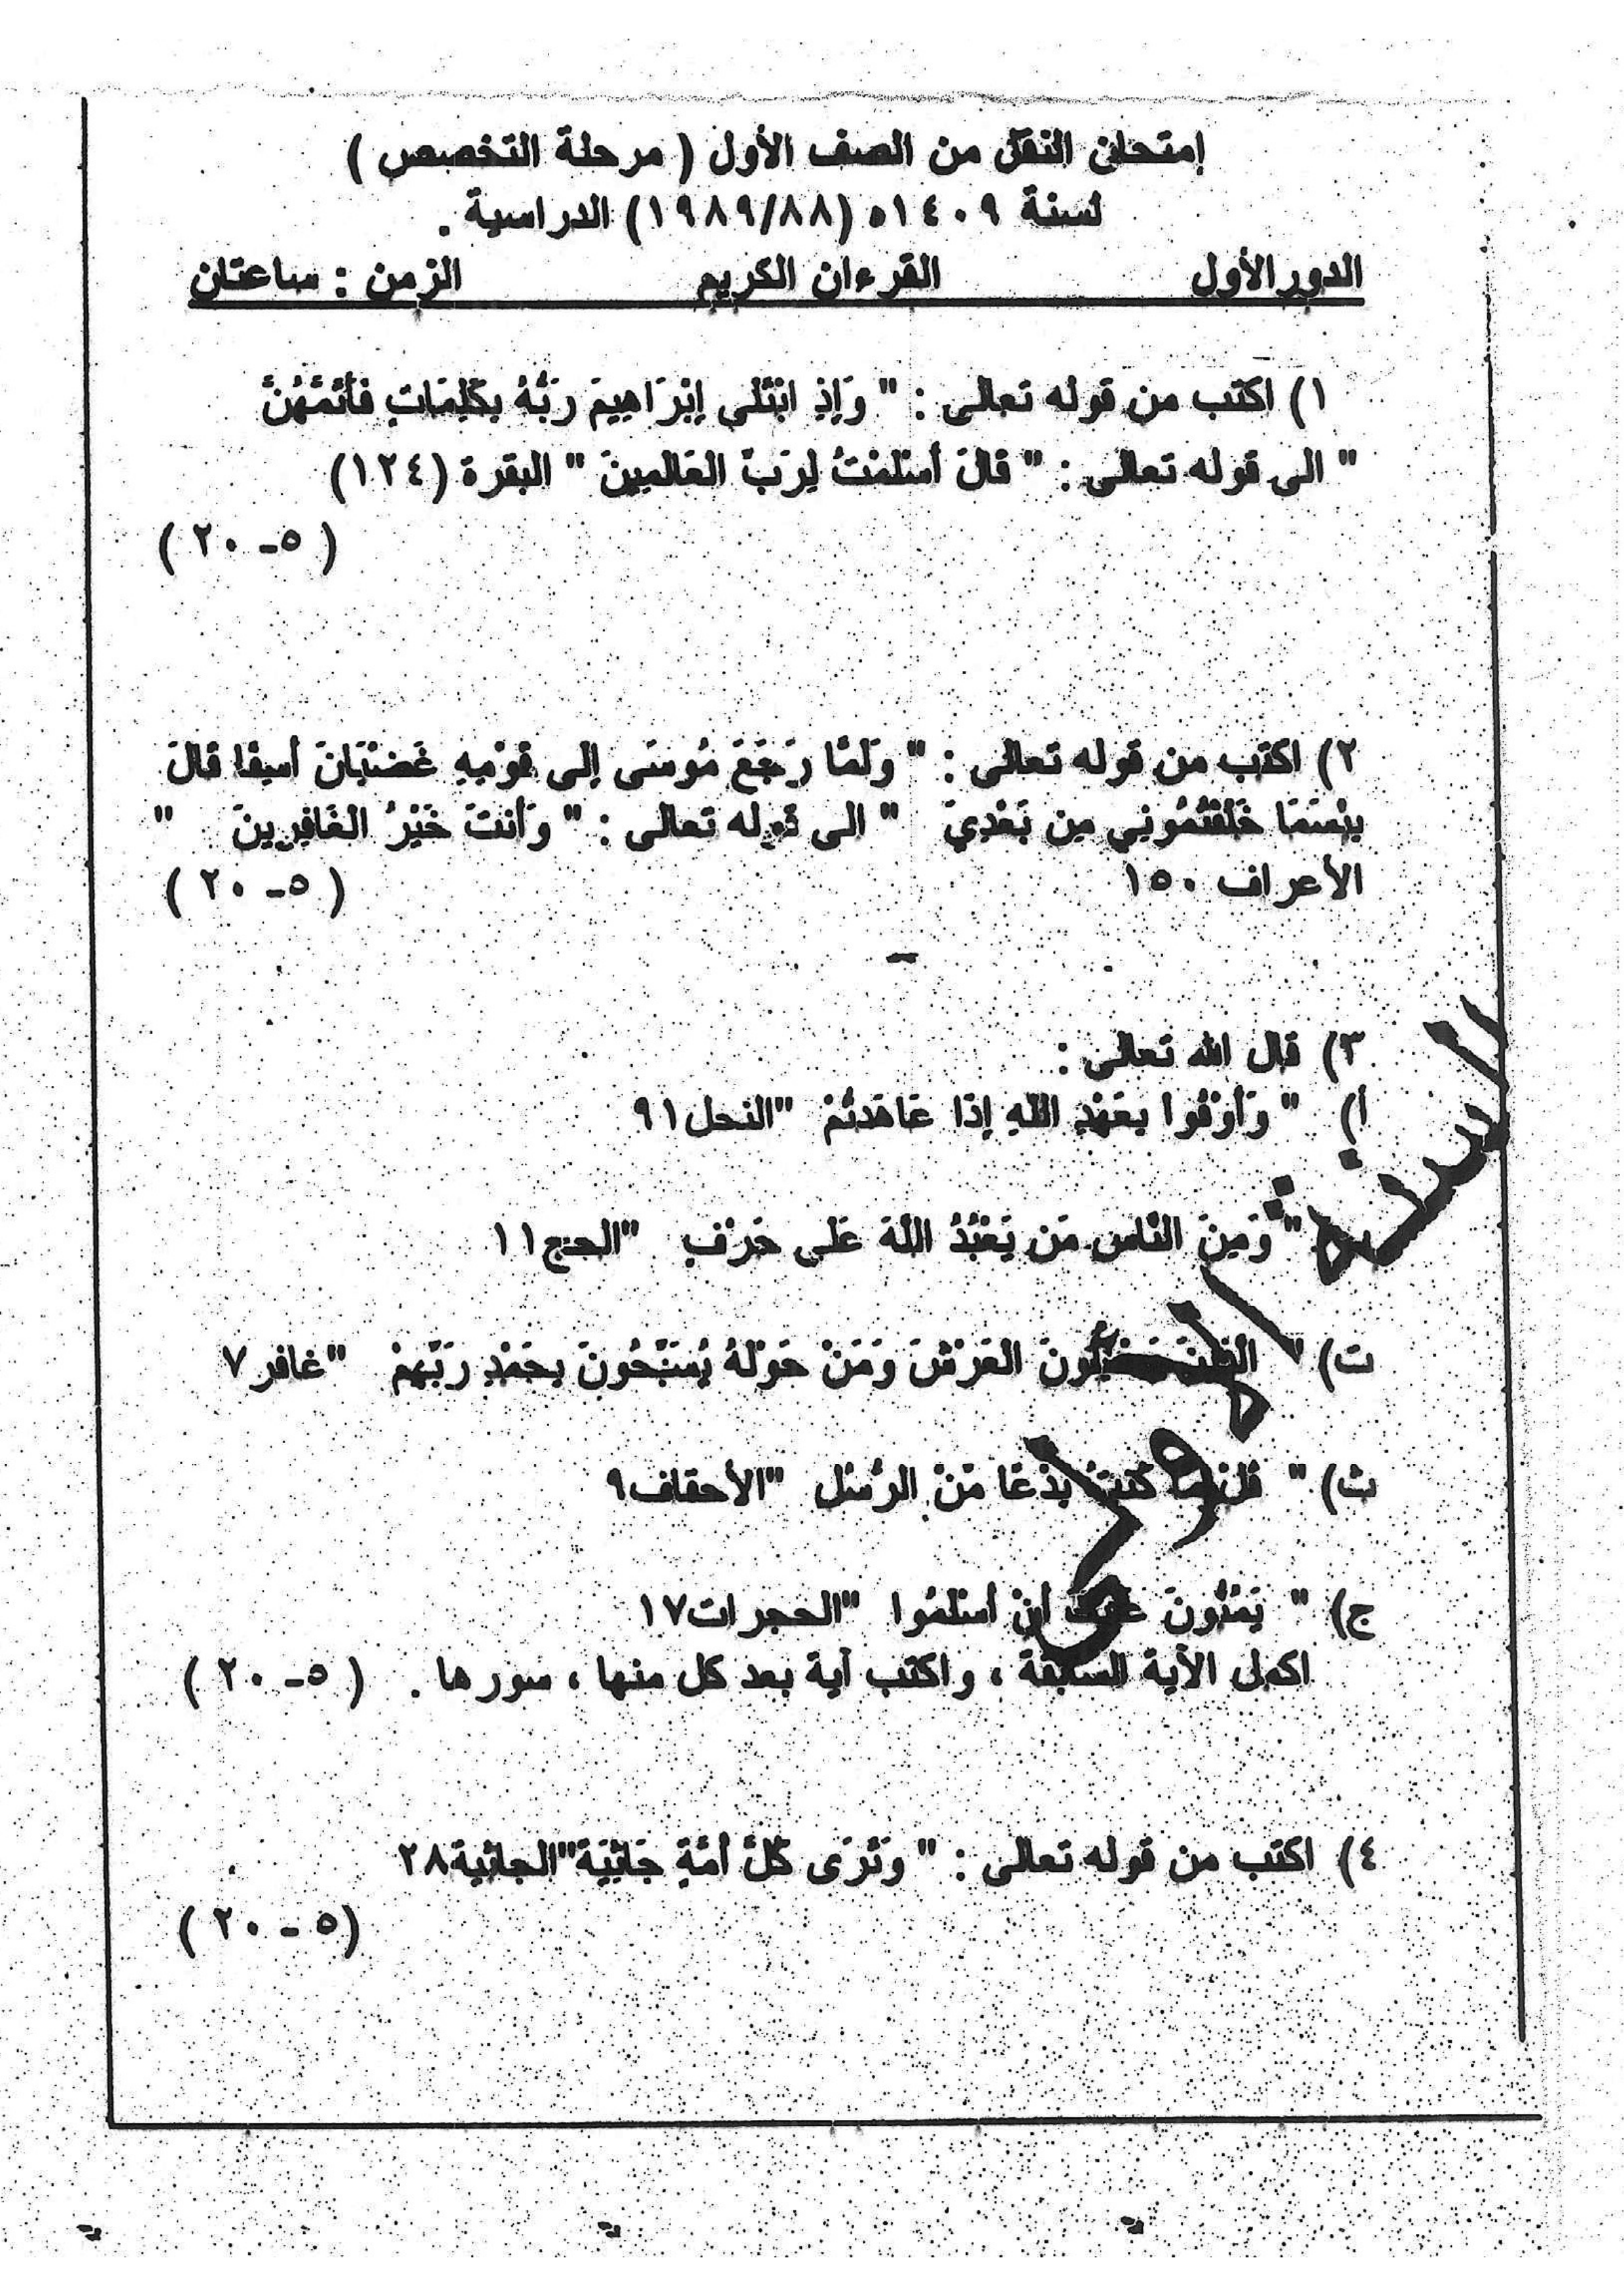 إمتحان النقل من الصف الأول ( مرحلة التخصص )
لسنة ١٤٠٩ه (١٩٨٩/٨٨) الدراسية .
الدور الأول القرءان الكريم الزمن : ساعتان
١) اكتب من قوله تعالى : " وَإِذِ ابْتَلى إِبْرَاهِيمَ رَبُّهُ بِكَلِمَاتٍ فَأَتَمَّهُنَّ
" الى قوله تعالى : " قَالَ أَسْلَمْتُ لِرَبِّ الْعَالَمِينَ " البقرة (١٢٤)
( ٥- ٢٠ )
٢) اكتب من قوله تعالى : " وَلَمَّا رَجَعَ مُوسَى إِلى قَوْمِهِ غَضْبَانَ أَسِفًا قَالَ
بِئْسَمَا خَلَفْتُمُونِي مِن بَعْدِيَ " الى قوله تعالى : " وَأَنتَ خَيْرُ الْغَافِرِينَ "
الأعراف ١٥٠ ( ٥- ٢٠ )
٣) قال الله تعالى :
أ) " وَأَوْفُوا بِعَهْدِ اللَّهِ إِذَا عَاهَدتُّمْ "النحل٩١
" وَمِنَ النَّاسِ مَن يَعْبُدُ اللَّهَ عَلى حَرْفٍ "الحج١١
ت) " الْعَرْشَ وَمَنْ حَوْلَهُ يُسَبِّحُونَ بِحَمْدِ رَبِّهِمْ "غافر٧
ث) " بِدْعًا مِّنَ الرُّسُلِ "الأحقاف٩
ج) " يَمُنُّونَ أَنْ أَسْلَمُوا "الحجرات١٧
اكمل الأية السابقة ، واكتب آية بعد كل منها ، سورها . ( ٥- ٢٠ )
٤) اكتب من قوله تعالى : " وَتَرَى كُلَّ أُمَّةٍ جَاثِيَة"الجاثية٢٨
(٥ - ٢٠ )